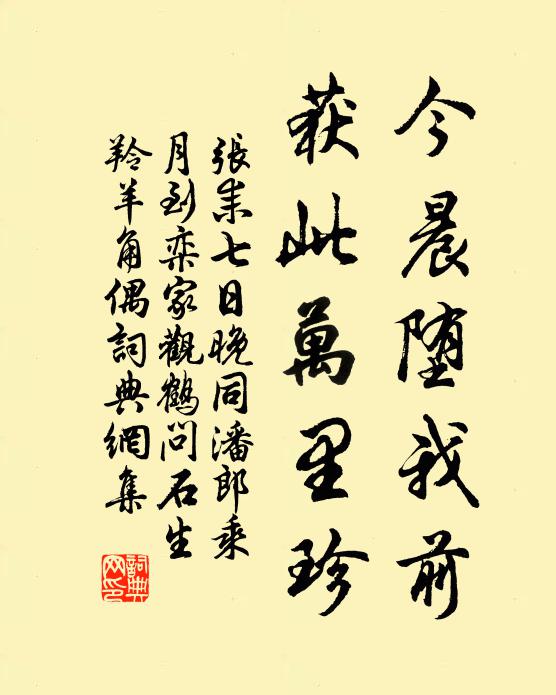 今晨堕我前
获此萬里珍
張耒七日晚同潘郎乘
月到栾家觀鶴问石生
羚羊角偶詞典網集
詞典网印